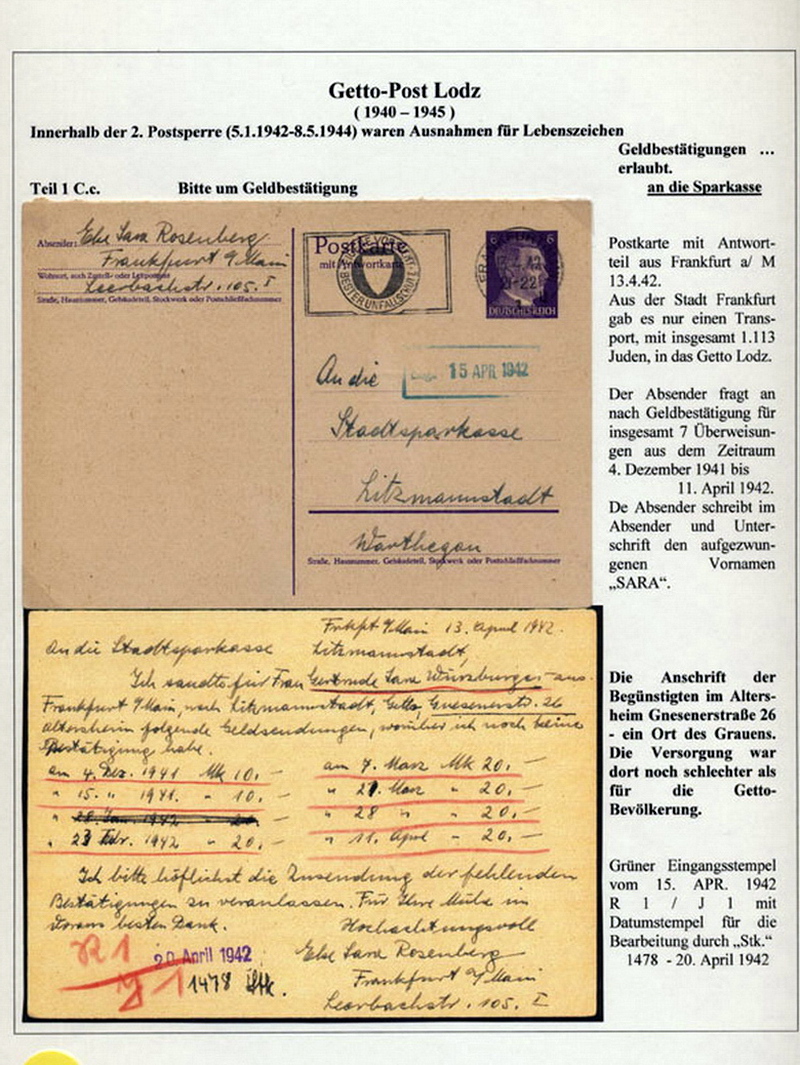 Getto-Post Lodz
( 1940 – 1945 )
Innerhalb der 2. Postsperre (5.1.1942-8.5.1944) waren Ausnahmen für Lebenszeichen
Geldbestätigungen …
erlaubt.
Teil 1 C.c. Bitte um Geldbestätigung an die Sparkasse
Absender: Else Sara Rosenberg
Frankfurt a/Main
Wohnort, auch Zustell- oder Leitpostamt
Leerbachstr. 105. I
Straße, Hausnummer, Gebäudeteil, Stockwerk oder Postschließfachnummer
Postkarte
mit Antwortkarte
6 6
DEUTSCHES REICH
21-22
An die
15 APR 1942
Stadtsparkasse
Litzmannstadt
Warthegau
Straße, Hausnummer, Gebäudeteil, Stockwerk oder Postschließfachnummer
Postkarte mit Antwort-
teil aus Frankfurt a/ M
13.4.42.
Aus der Stadt Frankfurt
gab es nur einen Trans-
port, mit insgesamt 1.113
Juden, in das Getto Lodz.
Der Absender fragt an
nach Geldbestätigung für
insgesamt 7 Überweisun-
gen aus dem Zeitraum
4. Dezember 1941 bis
11. April 1942.
De Absender schreibt im
Absender und Unter-
schrift den aufgezwun-
genen Vornamen
„SARA“.
Frkft a/Main 13. April 1942.
An die Stadtsparkasse Litzmannstadt,
Ich sandte für Frau Gertrude Sara Würzburger aus
Frankfurt a/Main, nach Litzmannstadt, Getto, Gnesenerstr. 26
Altersheim folgende Geldsendungen, worüber ich noch keine
Bestätigung habe.
am 4. Dez. 1941 Mk 10.–
" 15. " 1941. " 10.–
" 28. Jan. 1942 " 20.–
" 23 Febr. 1942 " 20.–
am 7. März Mk 20.–
" 21. März " 20.–
" 28 " " 20.–
" 11. April " 20.–
Ich bitte höflichst die Zusendung der fehlenden
Bestätigungen zu veranlassen. Für Ihre Mühe im
Voraus besten Dank.
Hochachtungsvoll
Else Sara Rosenberg
Frankfurt a/Main
Leerbachstr. 105. I
R 1
20 April 1942
J 1 1478 Stk.
Die Anschrift der
Begünstigten im Alters-
heim Gnesenerstraße 26
- ein Ort des Grauens.
Die Versorgung war
dort noch schlechter als
für die Getto-
Bevölkerung.
Grüner Eingangsstempel
vom 15. APR. 1942
R 1 / J 1 mit
Datumstempel für die
Bearbeitung durch „Stk.“
1478 - 20. April 1942